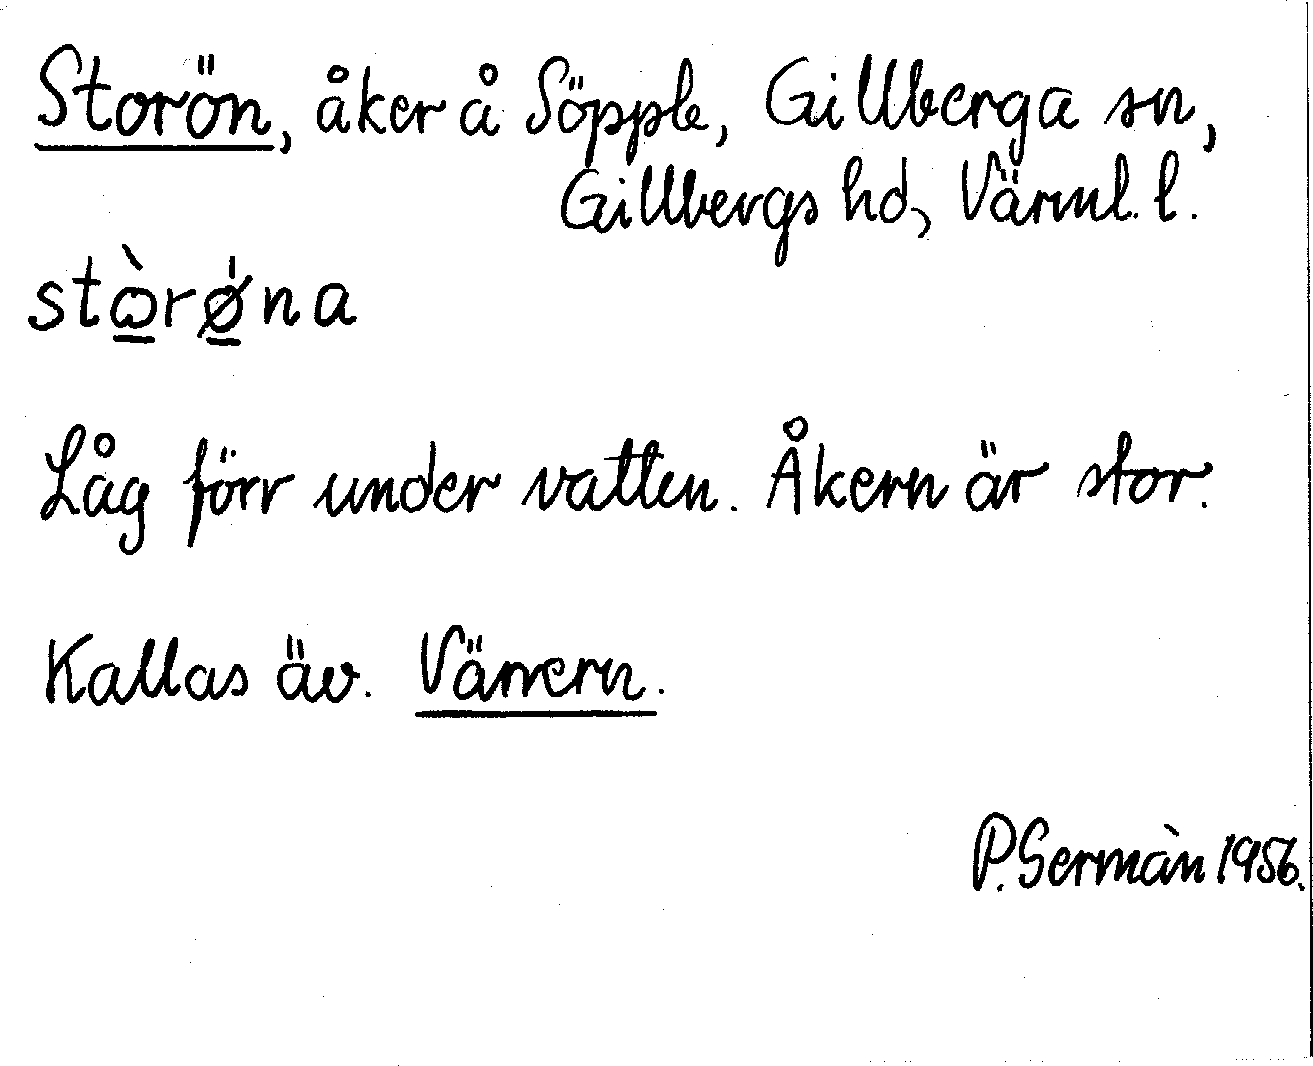 Storön, åker å Söpple, Gillberga sn,
Gillbergs hd, Värml. l.
stɷ̀rø̍na
Låg förr under vatten. Åkern är stor.
Kallas äv. Vännern.
P. Sermàn 1956.